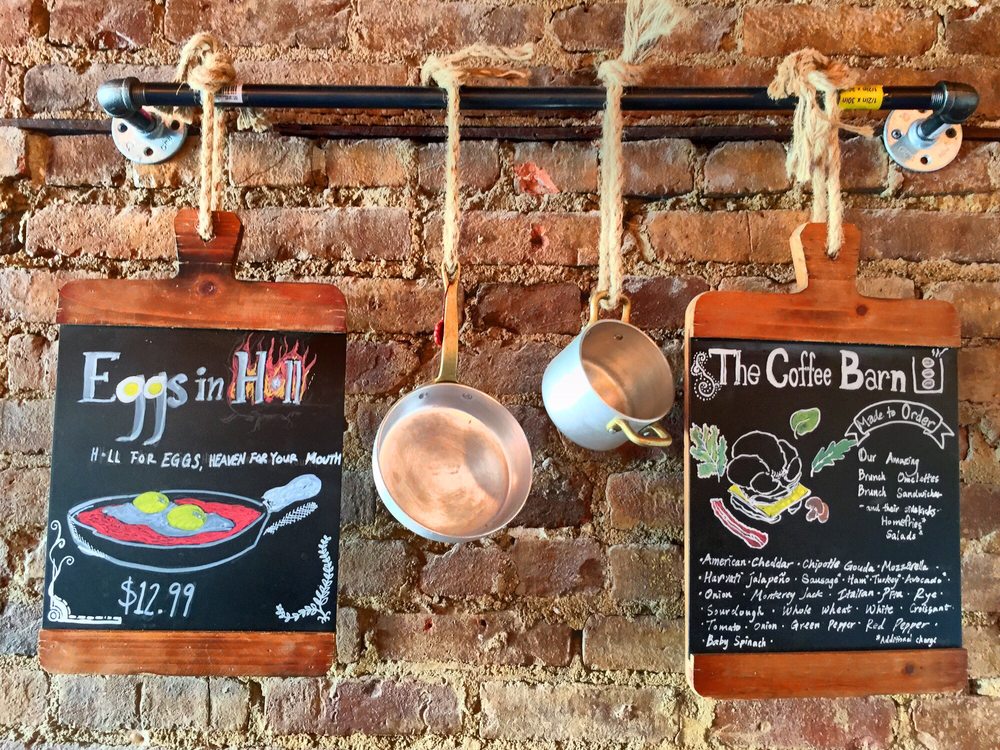 1/2in x 30in
Eggs in H*ll
H*LL FOR EGGS, HEAVEN FOR YOUR MOUTH
$12.99
The Coffee Barn
Made to Order
Our Amazing
Brunch Omelettes
Brunch Sandwiches
- and their sidekicks -
Homefries*
Salads*
· American · Cheddar · Chipotle Gouda · Mozzarella
· Havarti jalapeño · Sausage · Ham · Turkey · Avocado*
· Onion · Monterey Jack · Italian · Pita · Rye ·
· Sourdough · Whole Wheat · White · Croissant
· Tomato · Onion · Green Pepper · Red Pepper ·
· Baby Spinach *Additional charge